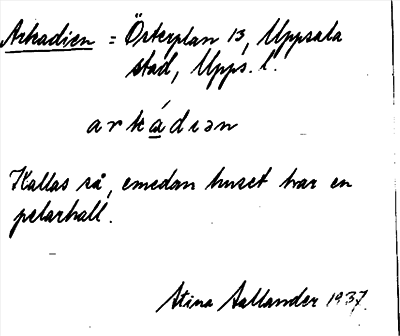 Arkadien = Österplan 13, Uppsala
stad, Upps. l.
arkádiən
Kallas så, emedan huset har en
pelarhall.
Stina Sallander 1937.